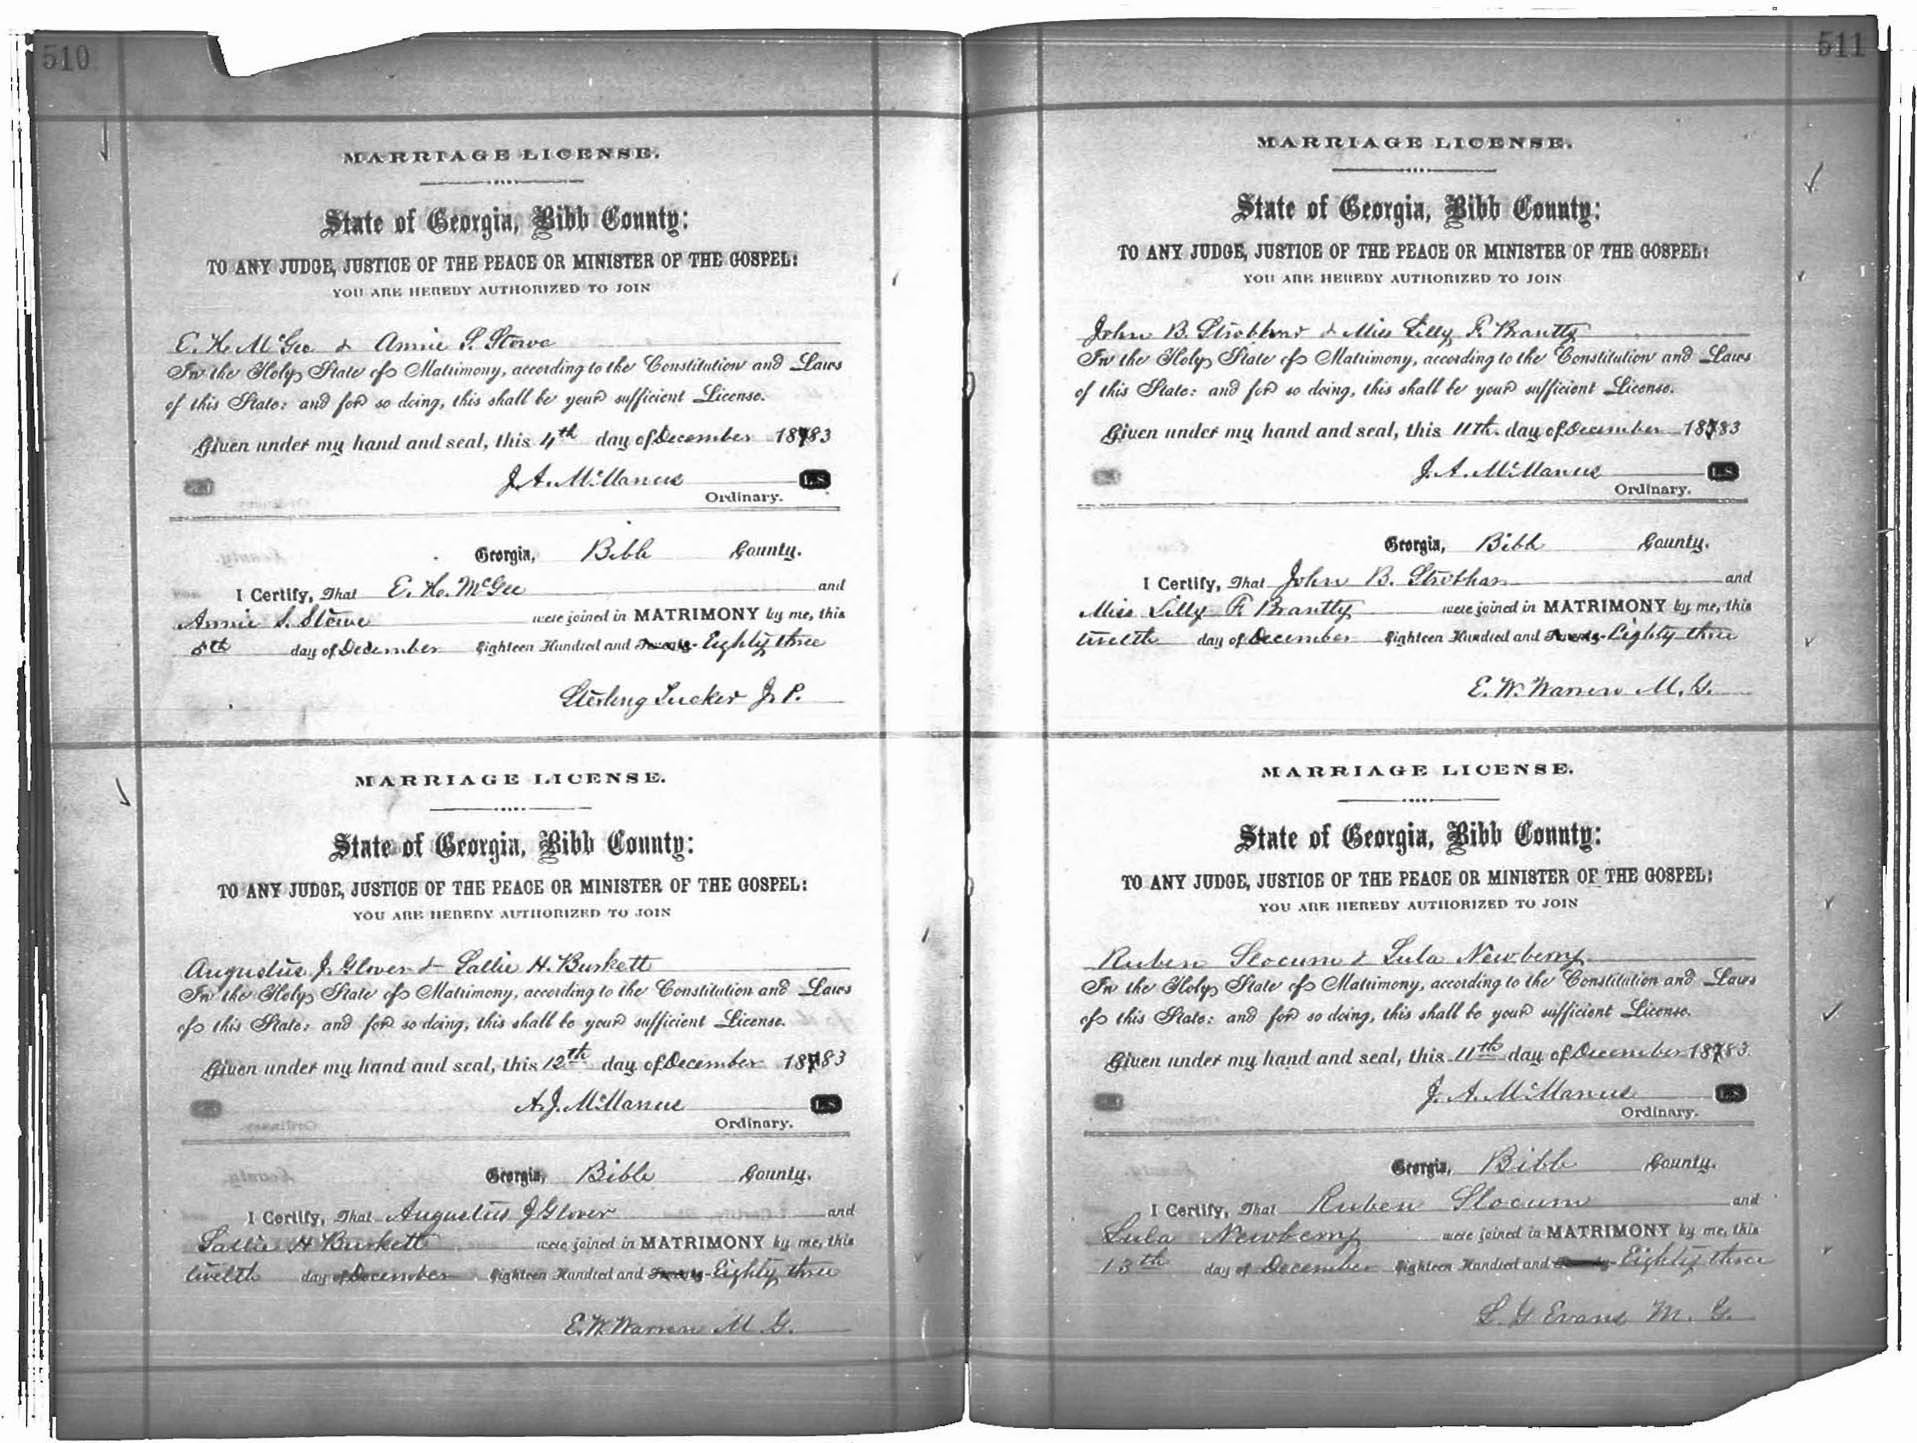 510
MARRIAGE LICENSE.
State of Georgia, Bibb County:
TO ANY JUDGE, JUSTICE OF THE PEACE OR MINISTER OF THE GOSPEL:
YOU ARE HEREBY AUTHORIZED TO JOIN
E. H. McGee & Annie S. Stowe
In the Holy State of Matrimony, according to the Constitution and Laws
of this State: and for so doing, this shall be your sufficient License.
Given under my hand and seal, this 4th day of December 1883
J. A. McManus L.S.
Ordinary.
Georgia, Bibb County.
I Certify, That E. H. McGee and
Annie S. Stowe were joined in MATRIMONY by me, this
5th day of December Eighteen Hundred and Twenty- Eighty three
Sterling Tucker J. P.
MARRIAGE LICENSE.
State of Georgia, Bibb County:
TO ANY JUDGE, JUSTICE OF THE PEACE OR MINISTER OF THE GOSPEL:
YOU ARE HEREBY AUTHORIZED TO JOIN
Augustus J. Glover & Sallie H. Burkett
In the Holy State of Matrimony, according to the Constitution and Laws
of this State: and for so doing, this shall be your sufficient License.
Given under my hand and seal, this 12th day of December 1883
A. J. McManus L.S.
Ordinary.
Georgia, Bibb County.
I Certify, That Augustus J Glover and
Sallie H Burkett were joined in MATRIMONY by me, this
twelth day of December Eighteen Hundred and Twenty- Eighty three
E. W. Warren M. G.
511
MARRIAGE LICENSE.
State of Georgia, Bibb County:
TO ANY JUDGE, JUSTICE OF THE PEACE OR MINISTER OF THE GOSPEL:
YOU ARE HEREBY AUTHORIZED TO JOIN
John B. Strobhar & Miss Lilly F. Brantly
In the Holy State of Matrimony, according to the Constitution and Laws
of this State: and for so doing, this shall be your sufficient License.
Given under my hand and seal, this 11th. day of December 1883
J. A. McManus L.S.
Ordinary.
Georgia, Bibb County.
I Certify, That John B. Strobhar and
Miss Lilly F. Brantly were joined in MATRIMONY by me, this
twelth day of December Eighteen Hundred and Twenty- Eighty three
E. W. Warren M. G.
MARRIAGE LICENSE.
State of Georgia, Bibb County:
TO ANY JUDGE, JUSTICE OF THE PEACE OR MINISTER OF THE GOSPEL:
YOU ARE HEREBY AUTHORIZED TO JOIN
Ruben Slocum & Lula Newberry
In the Holy State of Matrimony, according to the Constitution and Laws
of this State: and for so doing, this shall be your sufficient License.
Given under my hand and seal, this 11th day of December 1883
J. A. McManus L.S.
Ordinary.
Georgia, Bibb County.
I Certify, That Ruben Slocum and
Lula Newberry were joined in MATRIMONY by me, this
13th day of December Eighteen Hundred and Twenty- Eighty three
S. G Evans M. G.